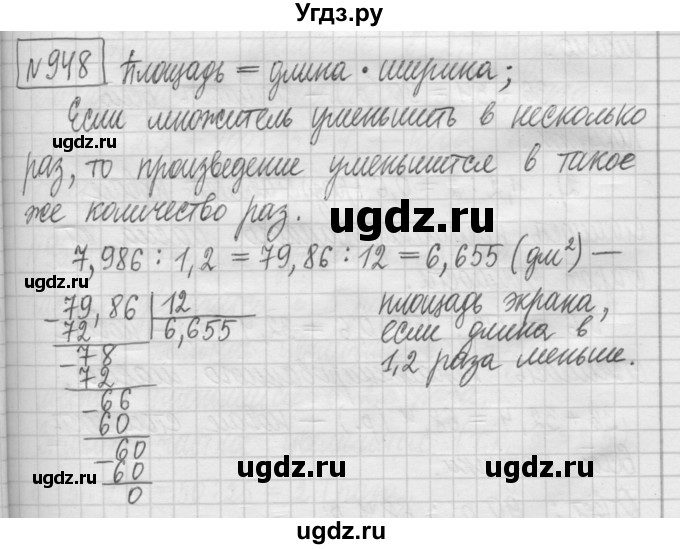 Угдз.ру
№948 Площадь = длина · ширина;
Если множитель уменьшить в несколько
раз, то произведение уменьшится в такое
же количество раз.
7,986 : 1,2 = 79,86 : 12 = 6,655 (дм²) —
площадь экрана,
если длина в
1,2 раза меньше.
79,86 | 12
72 6,655
-78
72
-66
60
-60
60
0
ugdz.ru
ugdz.ru
ugdz.ru
ugdz.ru
ugdz.ru
ugdz.ru
ugdz.ru
ugdz.ru